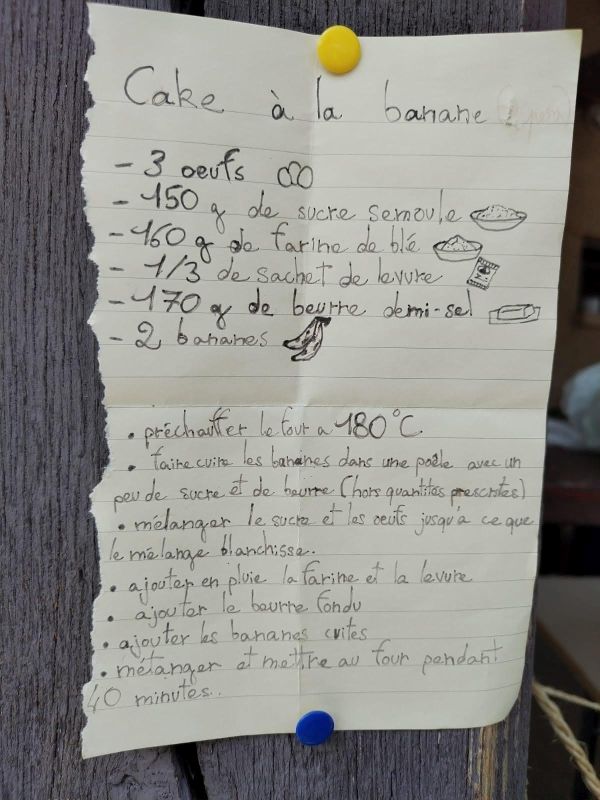 Cake à la banane
- 3 oeufs
- 150 g de sucre semoule
- 160 g de farine de blé
- 1/3 de sachet de levure
- 170 g de beurre demi-sel
- 2 bananes
• préchauffer le four a 180°C
• faire cuire les bananes dans une poêle avec un
peu de sucre et de beurre (hors quantités prescrites)
• mélanger le sucre et les oeufs jusqu'à ce que
le mélange blanchisse.
• ajouter en pluie la farine et la levure
• ajouter le beurre fondu
• ajouter les bananes cuites
• mélanger et mettre au four pendant
40 minutes..